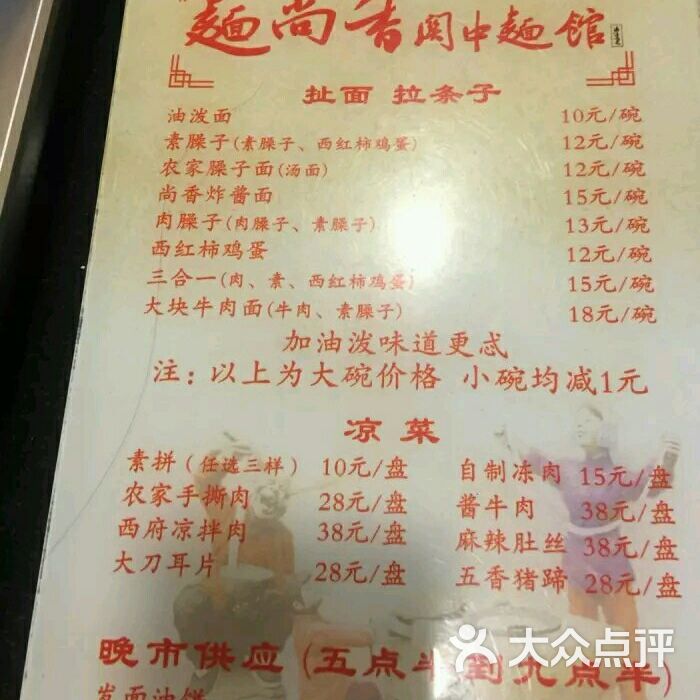 麵尚香 关中麵馆
扯面 拉条子
油泼面 10元/碗
素臊子(素臊子、西红柿鸡蛋) 12元/碗
农家臊子面(汤面) 12元/碗
尚香炸酱面 15元/碗
肉臊子(肉臊子、素臊子) 13元/碗
西红柿鸡蛋 12元/碗
三合一(肉、素、西红柿鸡蛋) 15元/碗
大块牛肉面(牛肉、素臊子) 18元/碗
加油泼味道更忒
注：以上为大碗价格 小碗均减1元
凉菜
素拼（任选三样） 10元/盘 自制冻肉 15元/盘
农家手撕肉 28元/盘 酱牛肉 38元/盘
西府凉拌肉 38元/盘 麻辣肚丝 38元/盘
大刀耳片 28元/盘 五香猪蹄 28元/盘
晚市供应（五点半到九点半）
发面油饼
大众点评